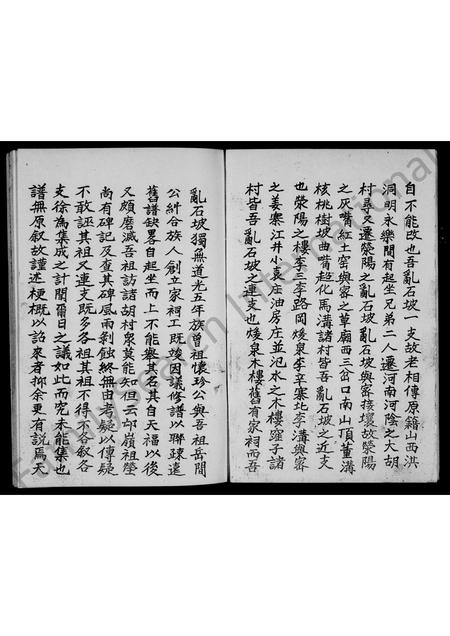 自不能改也吾亂石坡一支故老相傳原籍山西洪
洞明永樂間有起坐兄弟二人遷河南河陰之大胡
村㝷又遷滎陽之亂石坡亂石坡與密接壤故滎陽
之灰嘴紅土窑與密之草廟西三岔口南山頂董溝
核桃樹坡曲嘴起化馬溝諸村皆吾亂石坡之近支
也滎陽之樓李三李路岡㷪泉李辛寨北李溝與密
之姜寨江井小袁庄油房庄並汜水之木樓窪子諸
村皆吾亂石坡之連支也㷪泉木樓舊有家祠而吾
亂石坡獨無道光五年族曾祖懷珍公與吾祖岳閣
公糾合族人創立家祠工既竣因議修譜以聯疎遠
舊譜缺畧自起坐而上不能舉其名其自天福以後
又頗磨滅吾祖訪諸胡村泉莫能知但云邙嶺祖塋
尚有碑記及查其碑風雨剝蝕終無由考疑以傳疑
不敢誣其祖又連支既多各祖其祖不得不各叙各
支徐為集成之計閣爾日之議如此而究未能集也
譜無原叙故謹述梗概以詒來者抑余更有説焉天
FamilySearch International